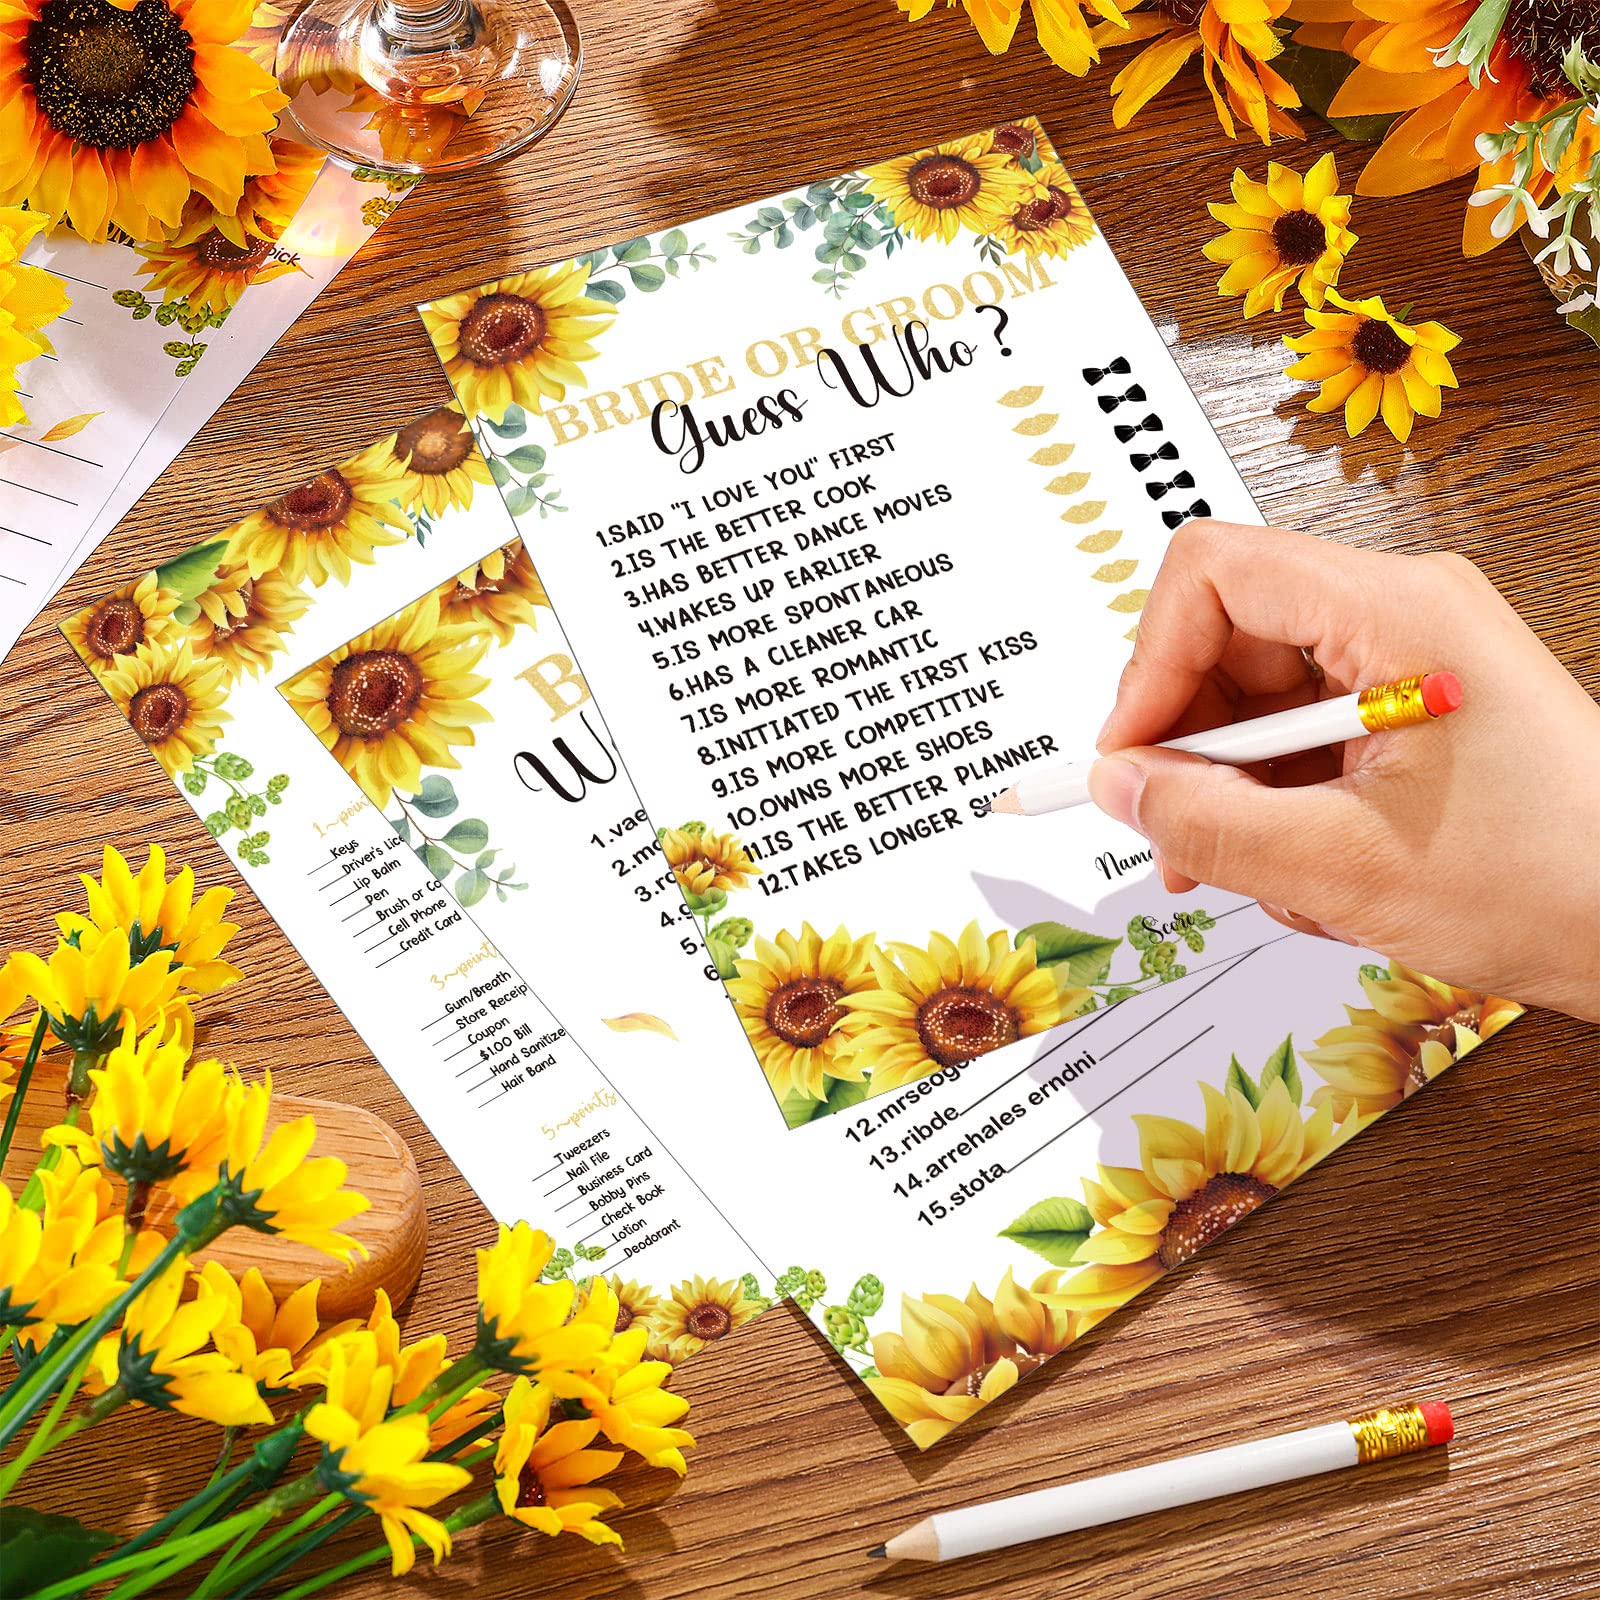 pick
BRIDE OR GROOM
Guess Who?
1.SAID "I LOVE YOU" FIRST
2.IS THE BETTER COOK
3.HAS BETTER DANCE MOVES
4.WAKES UP EARLIER
5.IS MORE SPONTANEOUS
6.HAS A CLEANER CAR
7.IS MORE ROMANTIC
8.INITIATED THE FIRST KISS
9.IS MORE COMPETITIVE
10.OWNS MORE SHOES
11.IS THE BETTER PLANNER
12.TAKES LONGER
Name
Score
B
W
1.vae
2.mo
3.ro
4.g
5.
6
12.mrseog
13.ribde
14.arrehales erndni
15.stota
1~point
Keys
Driver's Lice
Lip Balm
Pen
Brush or Co
Cell Phone
Credit Card
3~point
Gum/Breath
Store Receip
Coupon
$1.00 Bill
Hand Sanitize
Hair Band
5~points
Tweezers
Nail File
Business Card
Bobby Pins
Check Book
Lotion
Deodorant